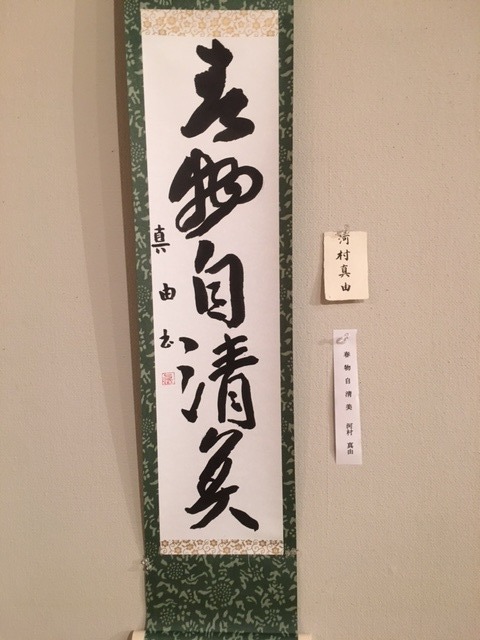 春物自清美
真由書
河村真由
春物自清美 河村真由